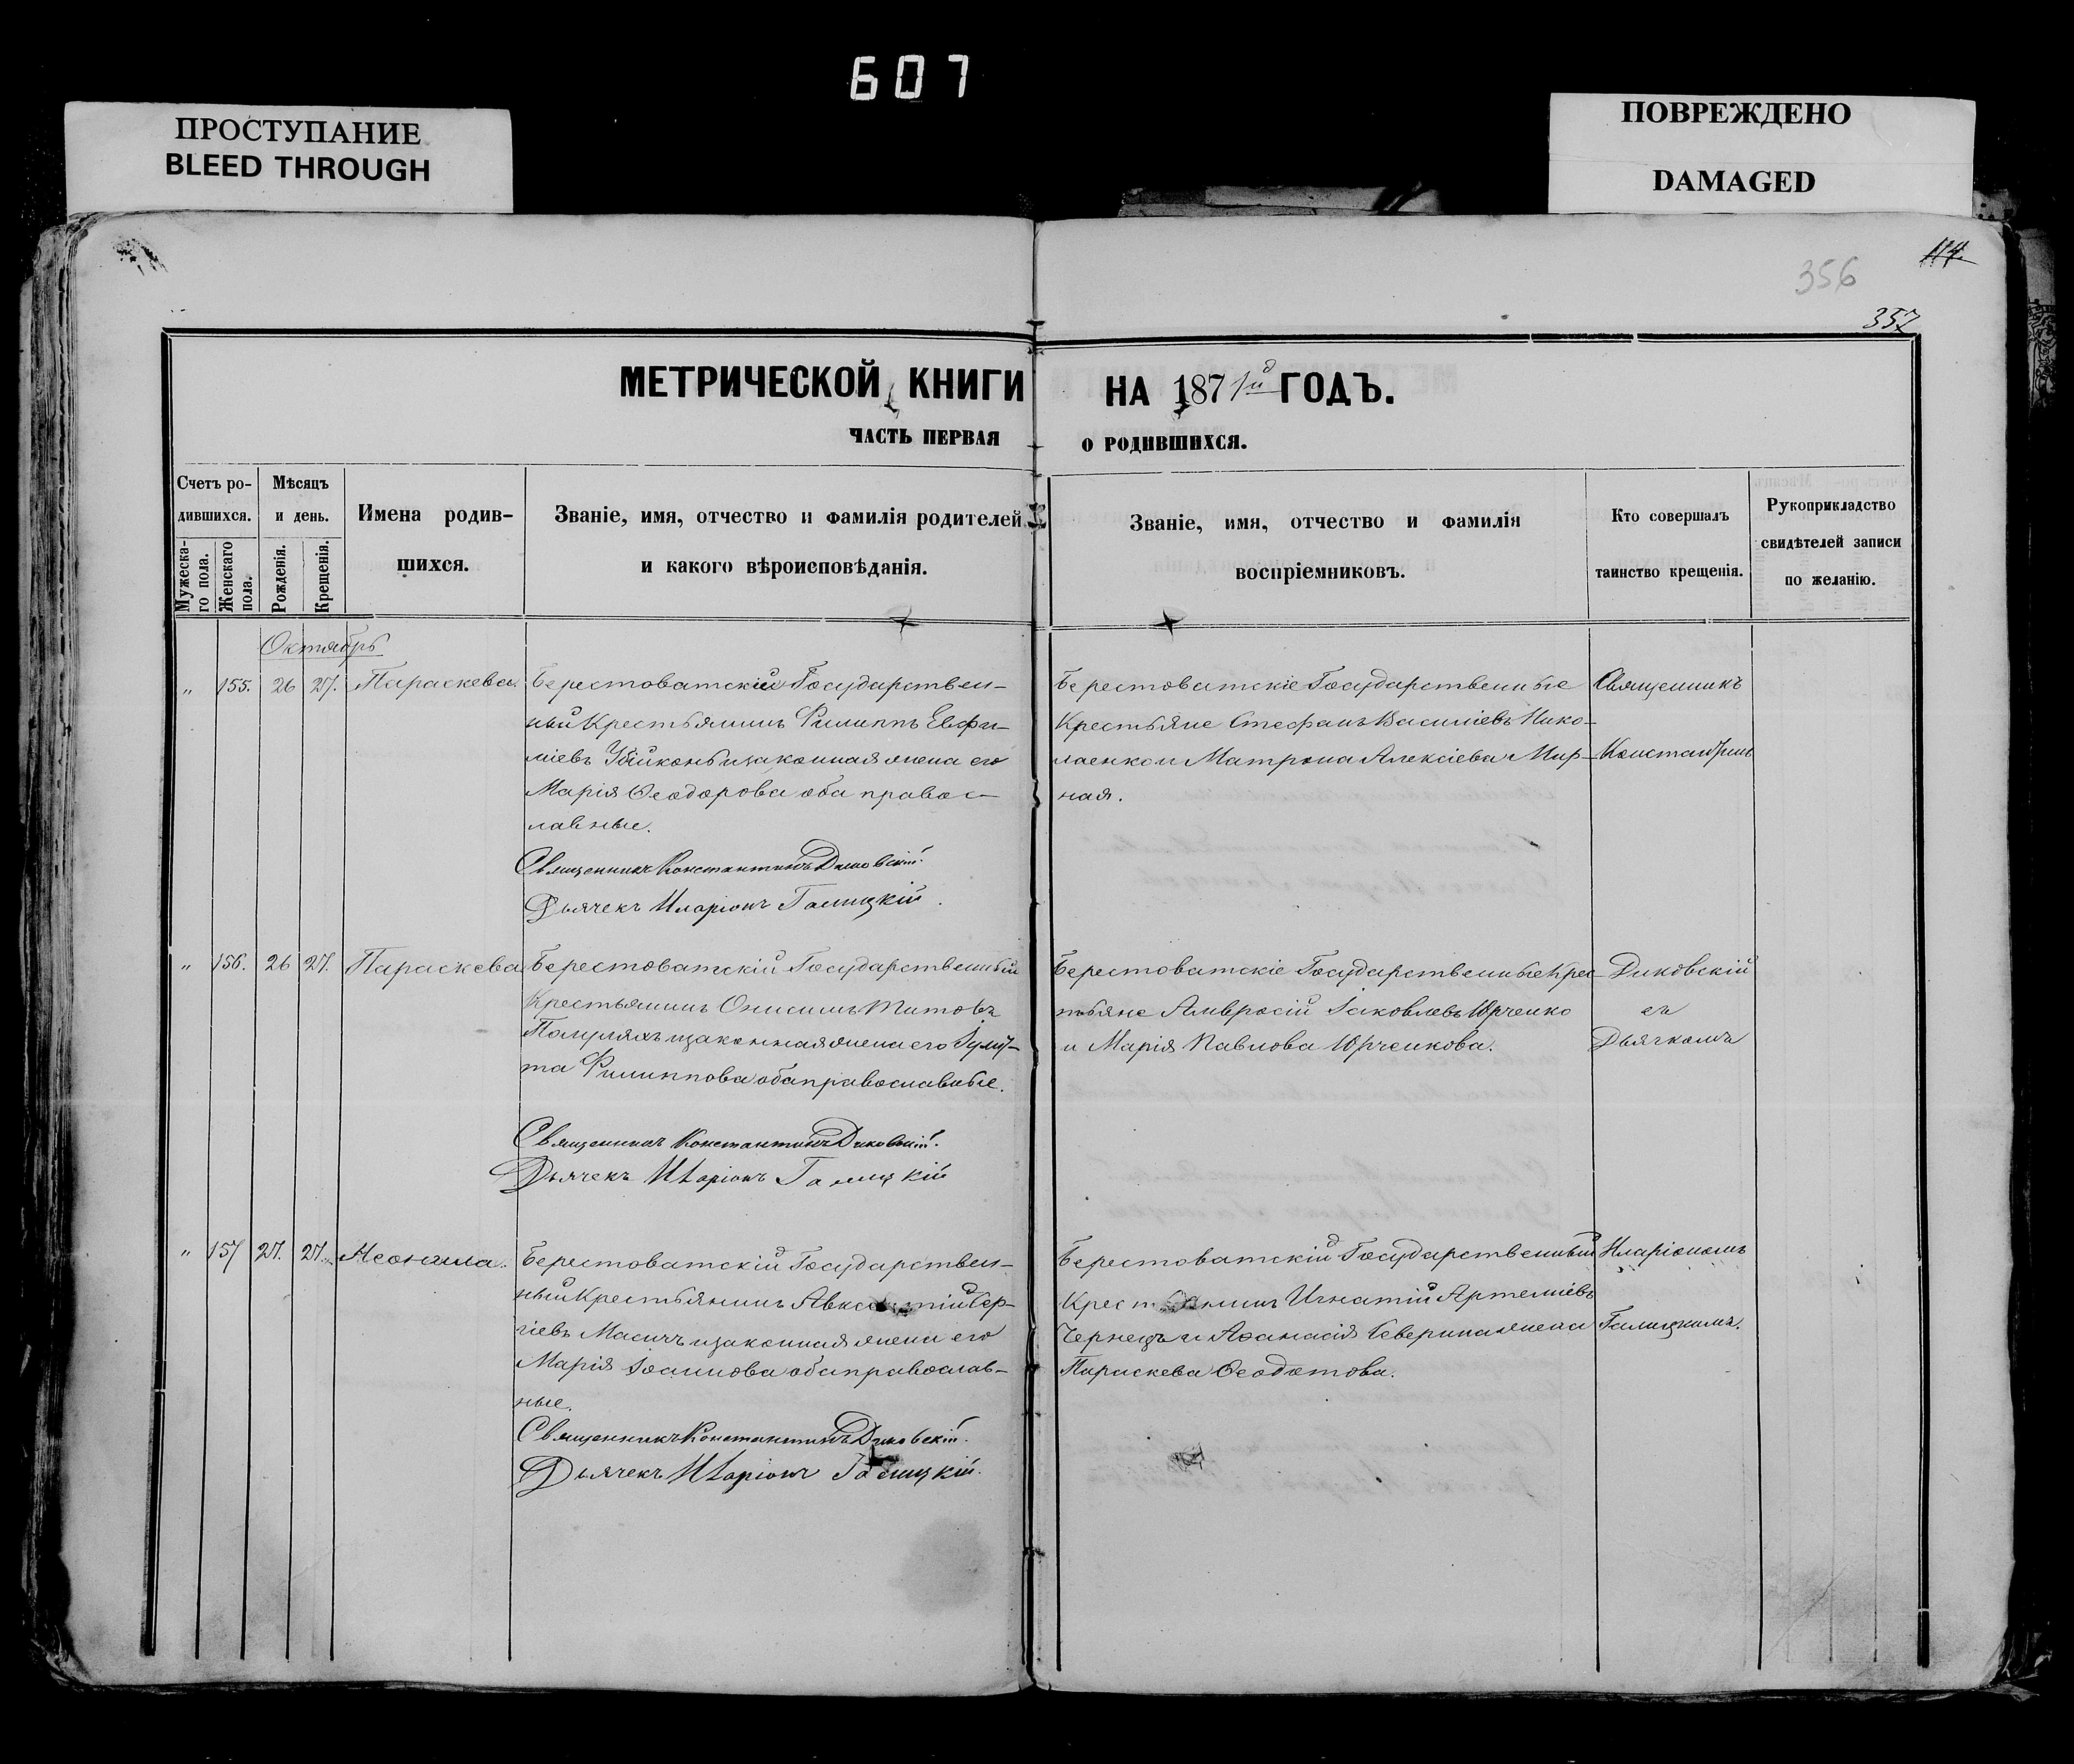 607
ПРОСТУПАНИЕ
BLEED THROUGH
ПОВРЕЖДЕНО
DAMAGED
114.
356
357
МЕТРИЧЕСКОЙ КНИГИ НА 1871й ГОДЪ.
ЧАСТЬ ПЕРВАЯ О РОДИВШИХСЯ.
Счетъ ро-
дившихся.
Мужеска-
го пола.
Женскаго
пола.
Мѣсяцъ
и день.
Рожденія.
Крещенія.
Имена родив-
шихся.
Званіе, имя, отчество и фамилія родителей
и какого вѣроисповѣданія.
Званіе, имя, отчество и фамилія
воспріемниковъ.
Кто совершалъ
таинство крещенія.
Рукоприкладство
свидѣтелей записи
по желанію.
Октябрь
" 155. 26 27. Параскева.
Берестоватскій Государствен-
ный Крестьянинъ Филиппъ Евфи-
міевъ и законная жена его
Марія Ѳеодорова оба правос-
лавные.
Священникъ Константинъ Диковскій.
Дьячекъ Иларіонъ Галицкій.
Берестоватскіе Государственные
Крестьяне Стефанъ Василіевъ Нико-
лаенко и Матрона Алексіева Мир-
ная.
Священникъ
Константинъ
" 156. 26 27. Параскева
Берестоватскій Государственный
Крестьянинъ Онисимъ Титовъ
и законная жена его Іули-
та Филиппова оба православные.
Священникъ Константинъ Диковскій.
Дьячекъ Иларіонъ Галицкій
Берестоватскіе Государственные Крес-
тьяне Амвросій Іаковлевъ Юрченко
и Марія Павлова Юрченкова.
Диковскій
съ
Дьячкомъ
" 157 27. 27. Неонила.
Берестоватскій Государствен-
ный Крестьянинъ Авксентій Сер-
гіевъ Масичъ и законная жена его
Марія Іоаннова оба православ-
ные.
Священникъ Константинъ Диковскій.
Дьячекъ Иларіонъ Галицкій.
Берестоватскій Государственный
Крестьянинъ Игнатій Артеміевъ
Чернецъ и Аѳанасія Северина жена
Параскева Ѳеодотова.
Иларіономъ
Галицкимъ.